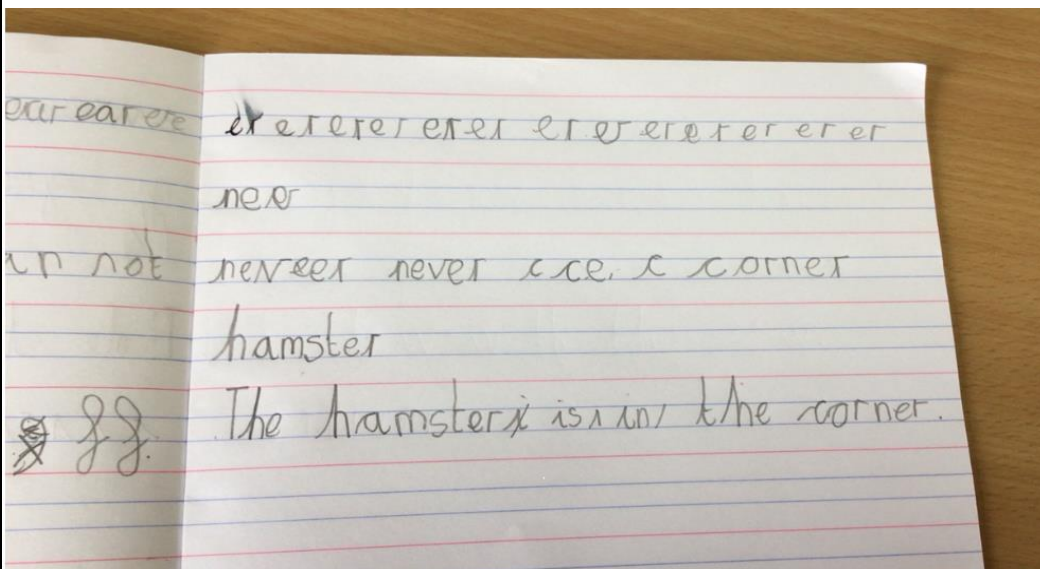 er er er er er er er er er er er er er er
ner
neveer never c ce. c corner
hamster
The hamster is in the corner.
not